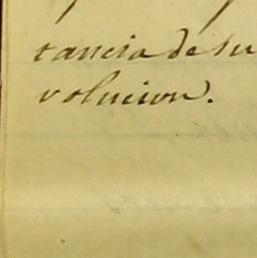 tancia de su
volucion.